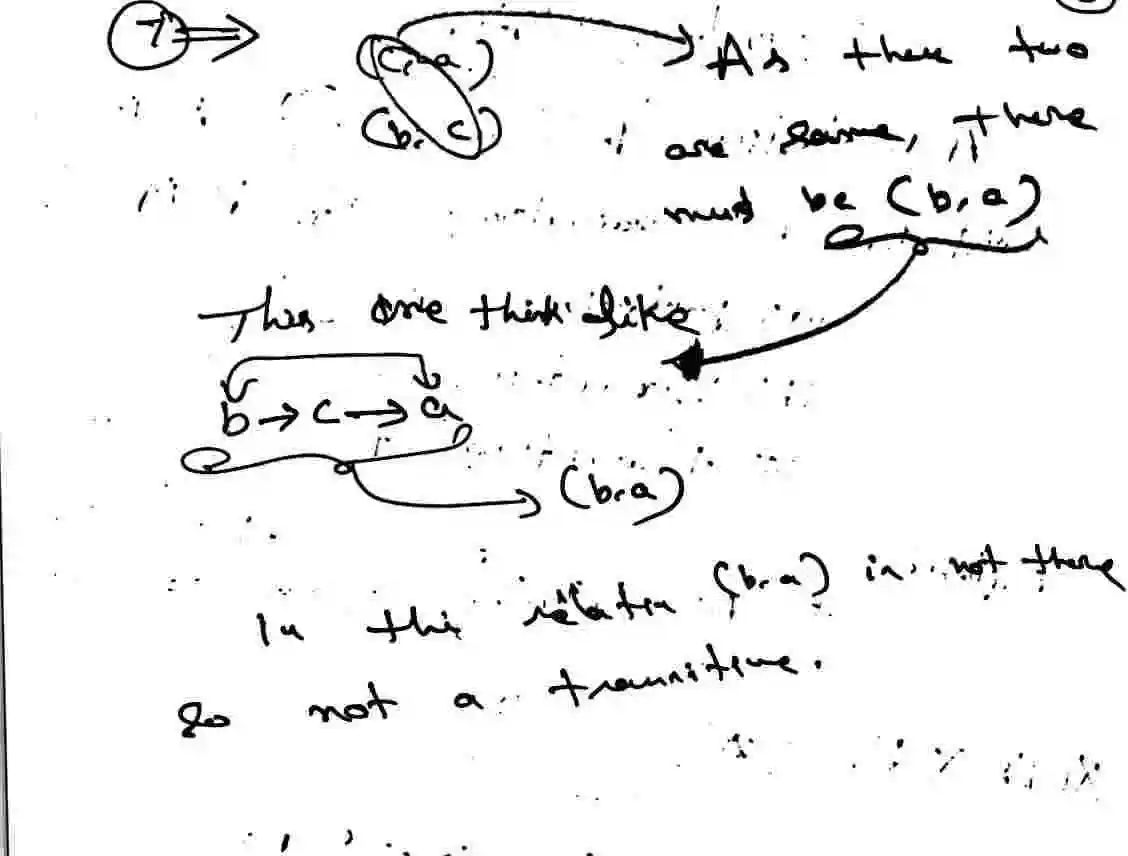 7 ⇒ (c, a) → As these two
(b, c) are same, there
must be (b, a)
This one think like
b → c → a
→ (b, a)
In this relation (b, a) is not there
So not a transitive.